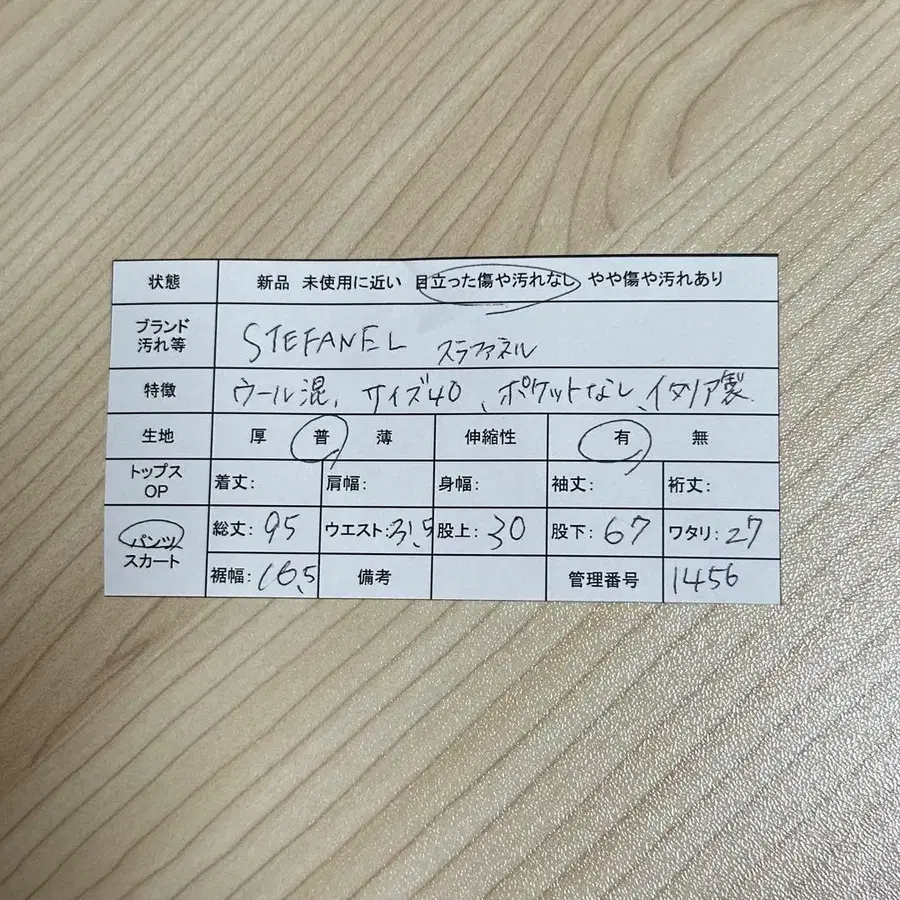 状態 新品 未使用に近い 目立った傷や汚れなし やや傷や汚れあり
ブランド 汚れ等 STEFANEL ステファネル
特徴 ウール混、サイズ40、ポケットなし、イタリア製
生地 厚 普 薄 伸縮性 有 無
トップス OP 着丈: 肩幅: 身幅: 袖丈: 裄丈:
パンツ スカート 総丈: 95 ウエスト: 31.5 股上: 30 股下: 67 ワタリ: 27
裾幅: 16.5 備考 管理番号 1456